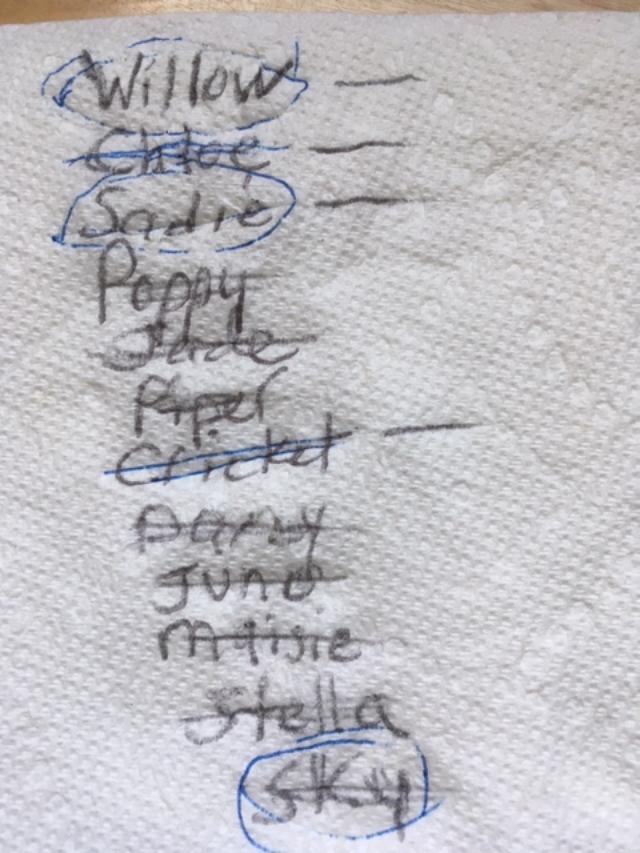 Willow —
Chloe —
Sadie —
Poppy
Jade
Piper
Cricket —
Darcy
Juno
Maisie
Stella
Sky